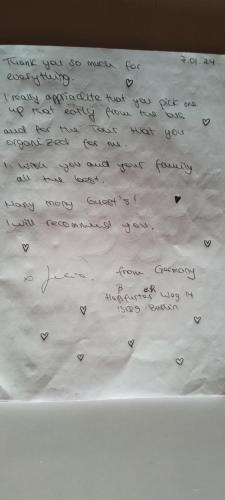 Thank you so much for
7.01.24
everything.
I really appriaciite that you pick me
up that early from the bus
and for the Tour that you
organized for me.
I wish you and your family
all the best.
Many more Guest's!
I will recommend you.
from Germany
Weg 14
Berlin